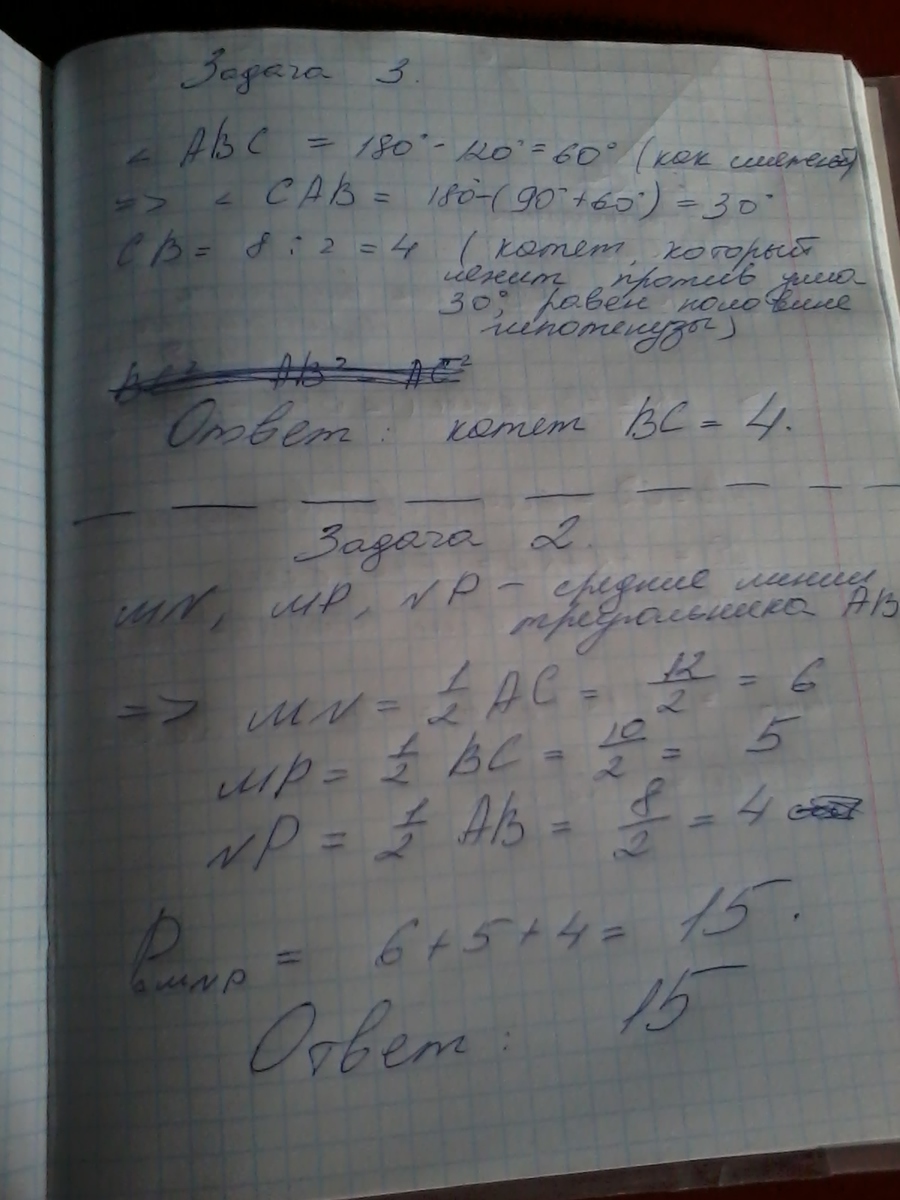 Задача 3.
< ABC = 180° - 120° = 60° (как смежной)
=> < CAB = 180°-(90°+60°) = 30°
CB = 8 : 2 = 4 ( катет, который
лежит против угла
30°, равен половине
гипотенузы)
BC² AB² AC²
Ответ : катет BC = 4.
Задача 2.
MN, MP, NP – средние линии
треугольника AB
=> MN = 1/2 AC = 12/2 = 6
MP = 1/2 BC = 10/2 = 5
NP = 1/2 AB = 8/2 = 4
P MNP = 6 + 5 + 4 = 15.
Ответ : 15